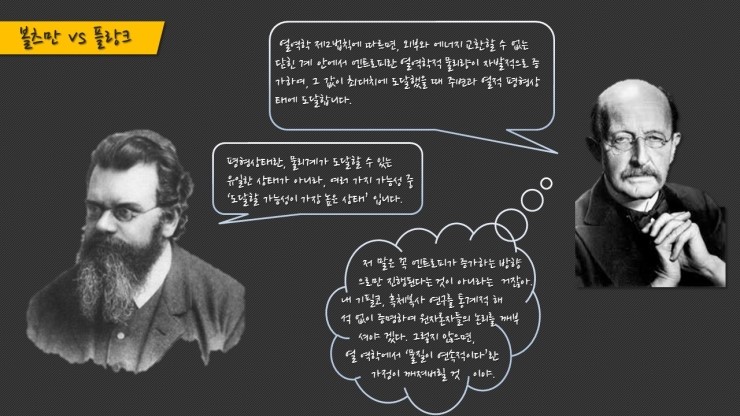 볼츠만 VS 플랑크
열역학 제2법칙에 따르면, 외부와 에너지 교환할 수 없는
닫힌 계 안에서 엔트로피란 열역학적 물리량이 자발적으로 증
가하여, 그 값이 최대치에 도달했을 때 주변과 열적 평형상
태에 도달합니다.
평형상태란, 물리계가 도달할 수 있는
유일한 상태가 아니라, 여러 가지 가능성 중
‘도달할 가능성이 가장 높은 상태’ 입니다.
저 말은 꼭 엔트로피가 증가하는 방향
으로만 진행된다는 것이 아니라는 거잖아.
내 기필코, 흑체복사 연구를 통계적 해
석 없이 증명하여 원자론자들의 논리를 깨부
셔야 겠다. 그렇지 않으면,
열 역학에서 ‘물질이 연속적이다’란
가정이 깨져버릴 것 이야.